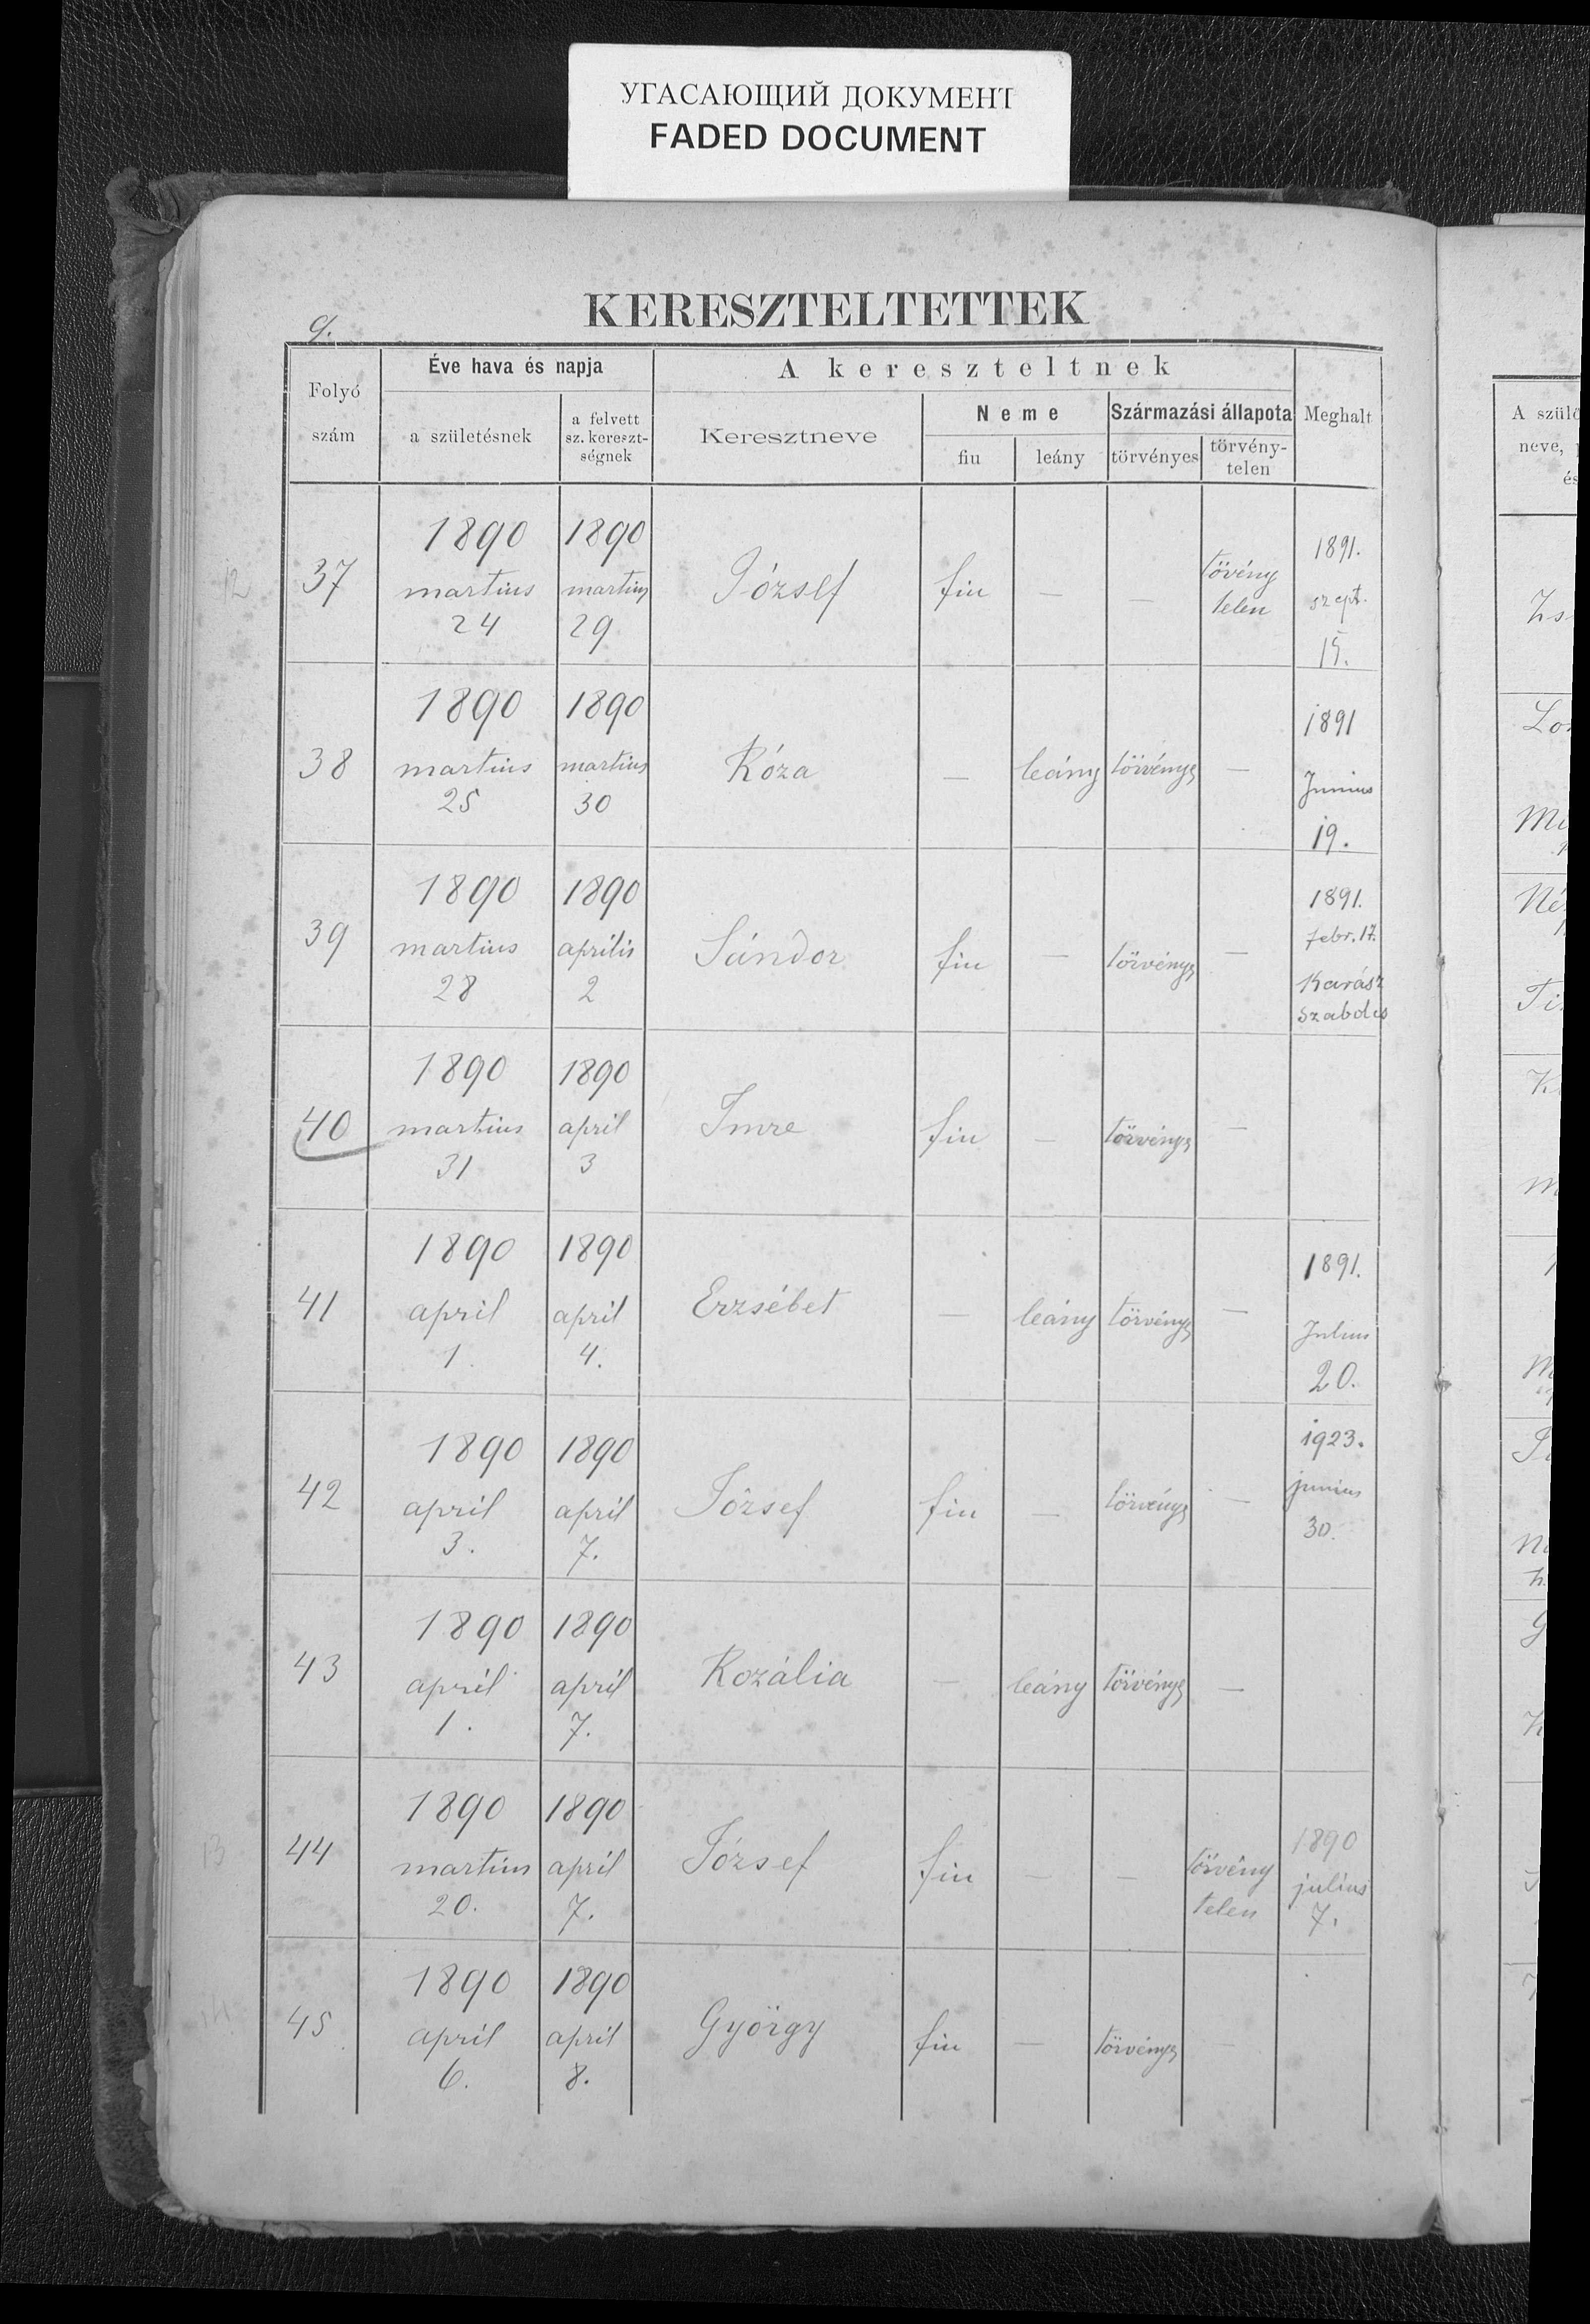 УГАСАЮЩИЙ ДОКУМЕНТ
FADED DOCUMENT
KERESZTELTETTEK
9.
Folyó szám
Éve hava és napja
a születésnek
a felvett sz. kereszt-ségnek
A kereszteltnek
Keresztneve
Neme
fiu
leány
Származási állapota
törvényes
törvény-telen
Meghalt
A szülő
neve,
és
12
37
1890 martius 24
1890 martius 29
József
fiu
—
—
tövény telen
1891. szept. 15.
38
1890 martius 25
1890 martius 30
Róza
—
leány
törvénys
—
1891 Junius 19.
39
1890 martius 28
1890 április 2
Sándor
fiu
—
törvénys
—
1891. febr. 17. Karász Szabolcs
40
1890 martius 31
1890 april 3
Imre
fiu
—
törvénys
—
41
1890 april 1.
1890 april 4.
Erzsébet
—
leány
törvénys
—
1891. Julius 20.
42
1890 april 3.
1890 april 7.
József
fiu
—
törvénys
—
1923. junius 30.
43
1890 april 1.
1890 april 7.
Rozália
—
leány
törvénys
—
13
44
1890 martius 20.
1890 april 7.
József
fiu
—
—
törvény telen
1890 julius 7.
14
45
1890 april 6.
1890 april 8.
György
fiu
—
törvénys
—